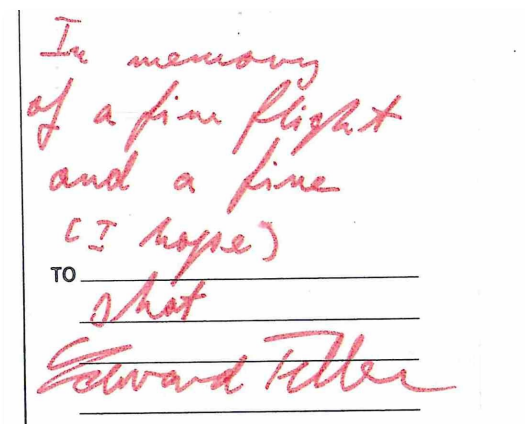 In memory
of a fine flight
and a fine
(I hope)
TO
shot
Edward Teller